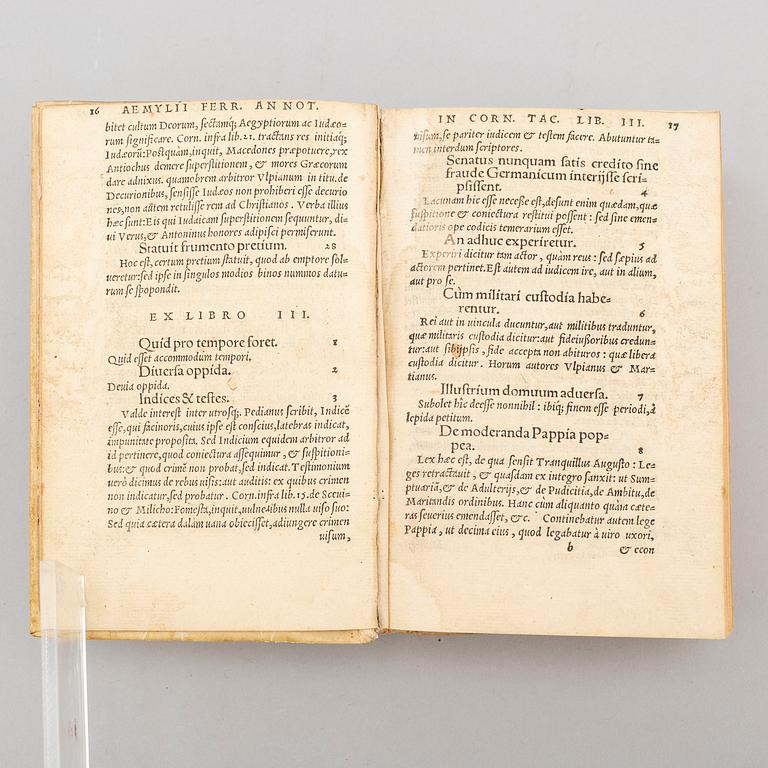 16 AEMYLII FERR. ANNOT.
bitet cultum Deorum, sectamq́; Aegyptiorum ac Iudæo-
rum significare. Corn. infra lib. 21. tractans res initiaq́;
Iudæorū: Postquàm, inquit, Macedones præpotuere, rex
Antiochus demere superstitionem, & mores Græcorum
dare adnixus. quamobrem arbitror Vlpianum in titu. de
Decurionibus, sensisse Iudæos non prohiberi esse decurio
nes, non autem retulisse rem ad Christianos. Verba illius
hæc sunt: Eis qui Iudaicam superstitionem sequuntur, di-
ui Verus, & Antoninus honores adipisci permiserunt.
Statuit frumento pretium. 28
Hoc est, certum pretium statuit, quod ab emptore sol-
ueretur: sed ipse in singulos modios binos nummos datu-
rum se spopondit.
EX LIBRO III.
Quid pro tempore foret. 1
Quid esset accommodum tempori.
Diuersa oppida. 2
Deuia oppida.
Indices & testes. 3
Valde interest inter utrosq́;. Pedianus scribit, Indicē
esse, qui facinoris, cuius ipse est conscius, latebras indicat,
impunitate proposita. Sed Indicium equidem arbitror ad
id pertinere, quod coniectura assequimur, & suspitioni-
bus: & quod crimē non probat, sed indicat. Testimonium
verò dicimus de rebus uisis: aut auditis: ex quibus crimen
non indicatur, sed probatur. Corn. infra lib. 15. de Sceui-
no & Milicho: Fomesta, inquit, uulneribus nulla uiso suo:
Sed quia cætera dalàm uana obiecisset, adiungere crimen
uisum,
IN CORN. TAC. LIB. III. 17
uisum, se pariter iudicem & testem facere. Abutuntur ta-
men interdum scriptores.
Senatus nunquam satis credito sine
fraude Germanicum interijsse scri-
psissent. 4
Lacunam hîc esse necesse est, desunt enim quædam, quæ
suspitione & coniectura restitui possent: sed sine emen-
datioris ope codicis temerarium esset.
An adhuc experiretur. 5
Experiri dicitur tam actor, quàm reus: sed sæpius ad
actorem pertinet. Est autem ad iudicem ire, aut in alium,
aut pro se.
Cùm militari custodia habe-
rentur. 6
Rei aut in uincula ducuntur, aut militibus traduntur,
quæ militaris custodia dicitur: aut fideiussoribus credun-
tur: aut sibijpsis, fide accepta non abituros: quæ libera
custodia dicitur. Horum autores Vlpianus & Mar-
tianus.
Illustrium domuum aduersa. 7
Subolet hîc deesse nonnihil: ibiq́; finem esse periodi, à
lepida petitum.
De moderanda Pappia pop-
pea. 8
Lex hæc est, de qua sensit Tranquillus Augusto: Le-
ges retractauit, & quasdam ex integro sanxit: ut Sum-
ptuariā, & de Adulterijs, & de Pudicitia, de Ambitu, de
Maritandis ordinibus. Hanc cùm aliquanto quàm cæte-
ras seuerius emendasset, &c. Continebatur autem lege
Pappia, ut decima eius, quod legabatur à uiro uxori,
b & econ